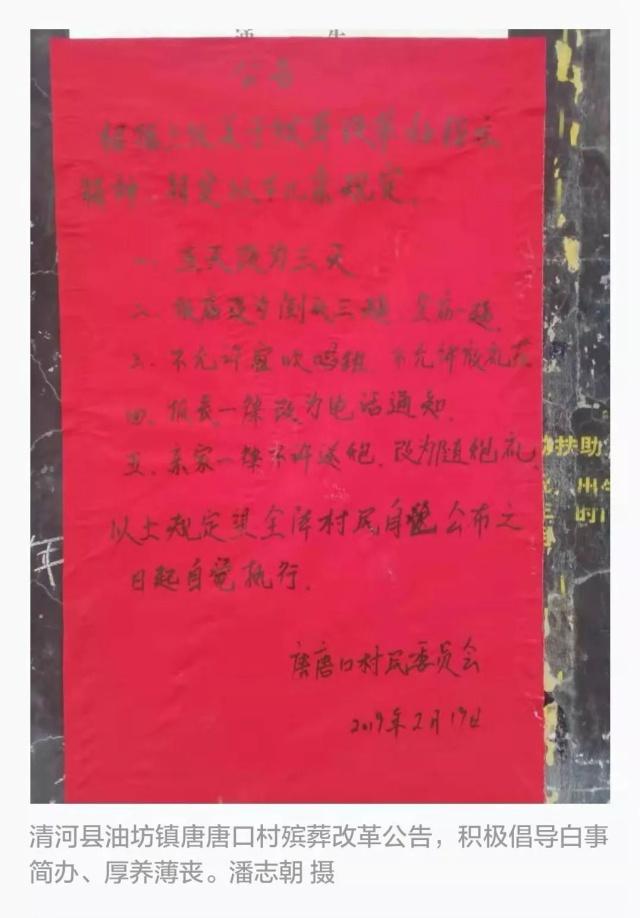 公告
根据上级关于殡葬改革和指示
精神,特定以下几条规定.
一、五天改为三天
二、饭店改为倒头三桌,
三、不允许雇吹鸣班,不允许放礼花
四、报丧一律改为电话通知.
五、亲家一律不许送炮,改为随炮礼.
以上规定望全体村民自觉公布之
日起自觉执行.
唐唐口村民委员会
2019年2月19日
扶助
年
清河县油坊镇唐唐口村殡葬改革公告,积极倡导白事
简办、厚养薄丧。潘志朝 摄